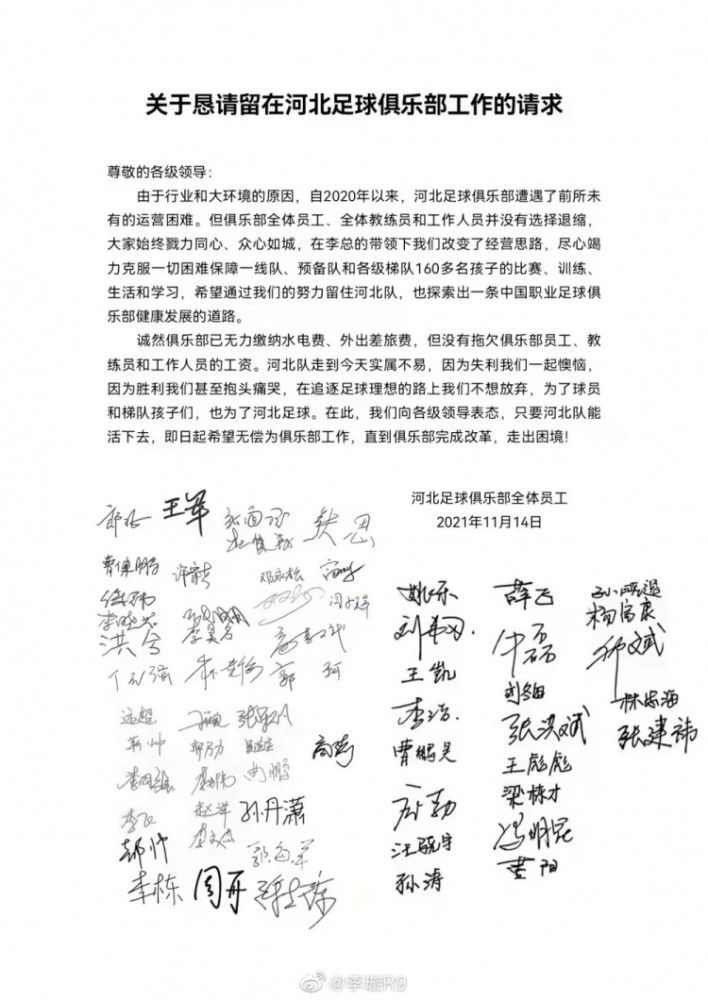 关于恳请留在河北足球俱乐部工作的请求
尊敬的各级领导：
由于行业和大环境的原因，自2020年以来，河北足球俱乐部遭遇了前所未
有的运营困难。但俱乐部全体员工、全体教练员和工作人员并没有选择退缩，
大家始终戮力同心、众心如城，在李总的带领下我们改变了经营思路，尽心竭
力克服一切困难保障一线队、预备队和各级梯队160多名孩子的比赛、训练、
生活和学习，希望通过我们的努力留住河北队，也探索出一条中国职业足球俱
乐部健康发展的道路。
诚然俱乐部已无力缴纳水电费、外出差旅费，但没有拖欠俱乐部员工、教
练员和工作人员的工资。河北队走到今天实属不易，因为失利我们一起懊恼，
因为胜利我们甚至抱头痛哭，在追逐足球理想的路上我们不想放弃，为了球员
和梯队孩子们，也为了河北足球。在此，我们向各级领导表态，只要河北队能
活下去，即日起希望无偿为俱乐部工作，直到俱乐部完成改革，走出困境！
河北足球俱乐部全体员工
2021年11月14日
王军
曹保鹏
洪兮
郭 珂
远超
孙丹潇
郝帅
李栋 周冉
姚乐 薛飞
杨富康
王凯
刘旭
李浩 张洪斌
林海
张建祎
曹鹏昊
王彪彪
梁栋才
汪晓宇
冯明昆
孙涛
黄阳
@李璇R9